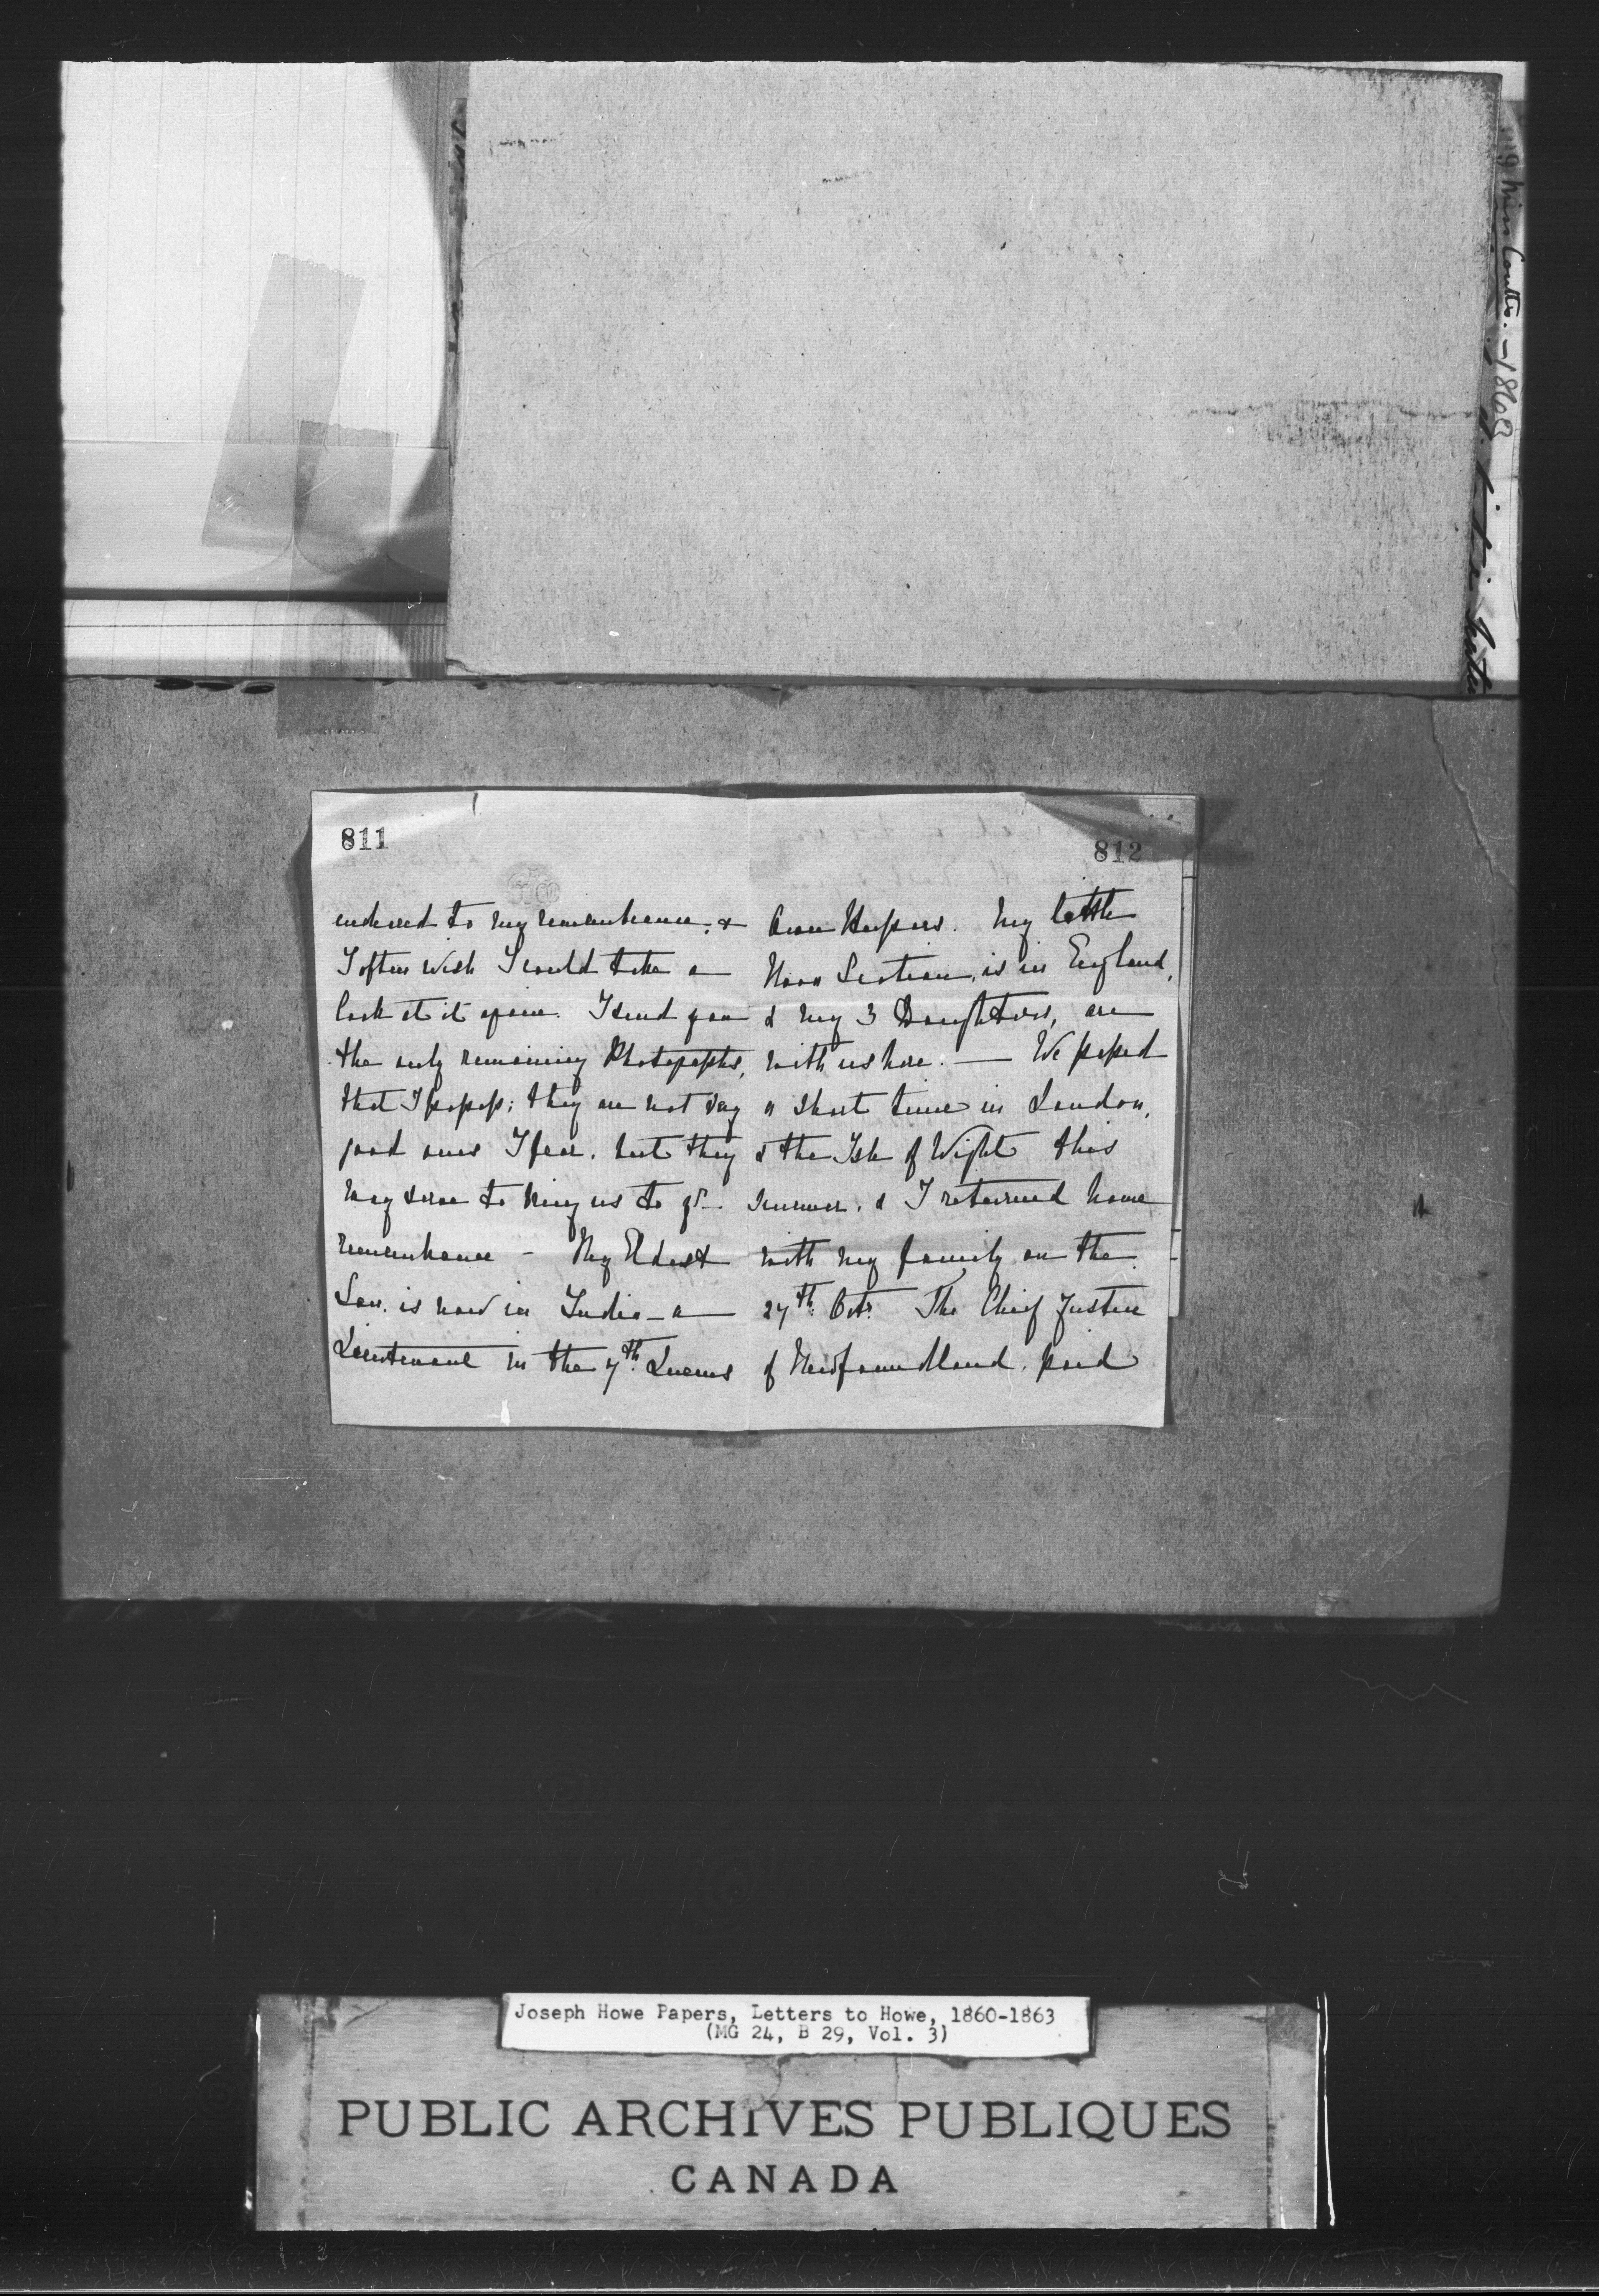 811
endeared to my remembrance, &
I often wish I could take a
look at it again. I send you
the only remaining Photographs,
that I possess; they are not very
good ones I fear, but they
may serve to bring us to yr
remembrance - My Eldest
Son, is now in India - a
Lieutenant in the 7th Queens
812
Own Hussars. My little
Nova Scotian, is in England,
& my 3 Daughters, are
with us here. — We passed
a short time in London,
& the Isle of Wight this
summer, & I returned home
with my family on the
27th Octr. The Chief Justice
of Newfoundland, paid
Miss Coutts. - 1863
Joseph Howe Papers, Letters to Howe, 1860-1863
(MG 24, B 29, Vol. 3)
PUBLIC ARCHIVES PUBLIQUES
CANADA